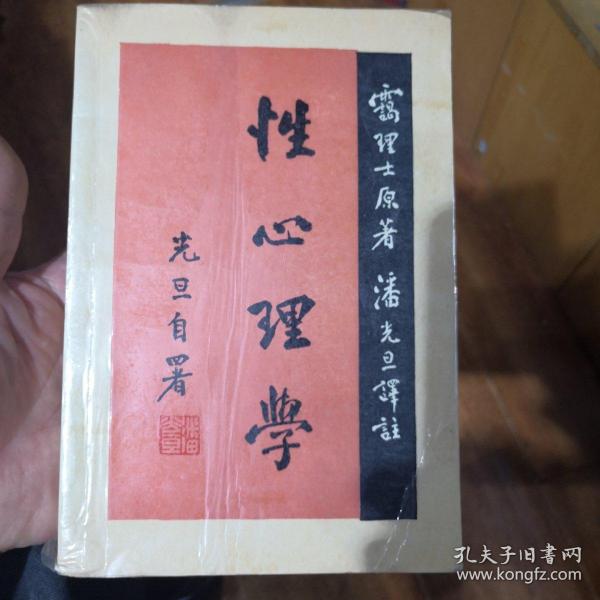 靄理士原著 潘光旦譯註
性心理學
光旦自署
孔夫子旧书网
www.kongfz.com